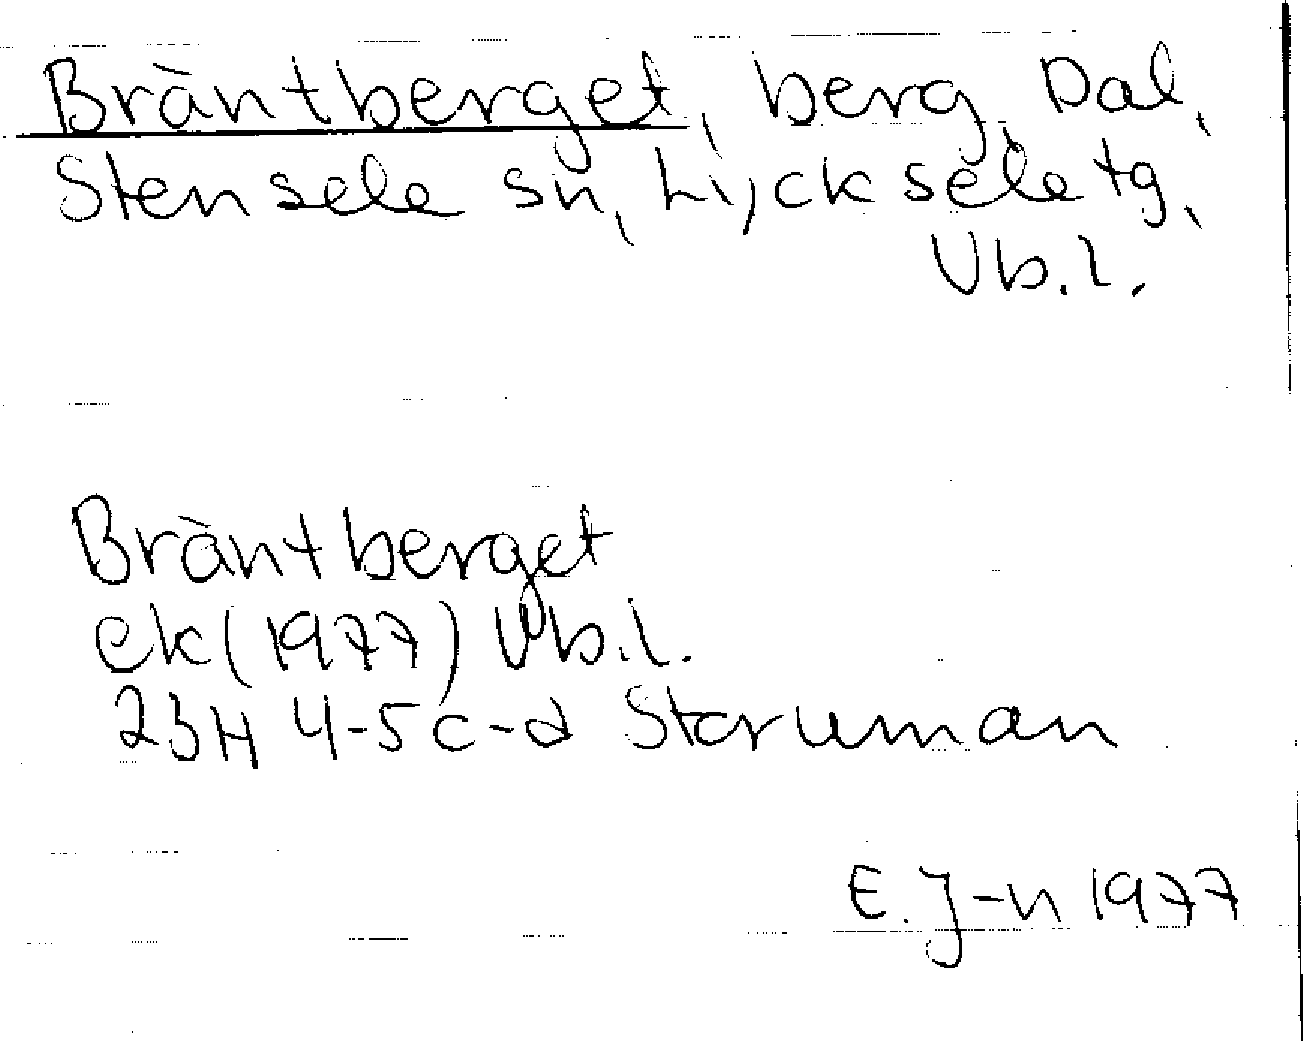 Bräntberget, berg, Dal,
Stensele sn, Lycksele tg,
Vb.l.
Bräntberget
ek (1977) Vb.l.
23H 4-5 c-d Storuman
E. J-n 1977